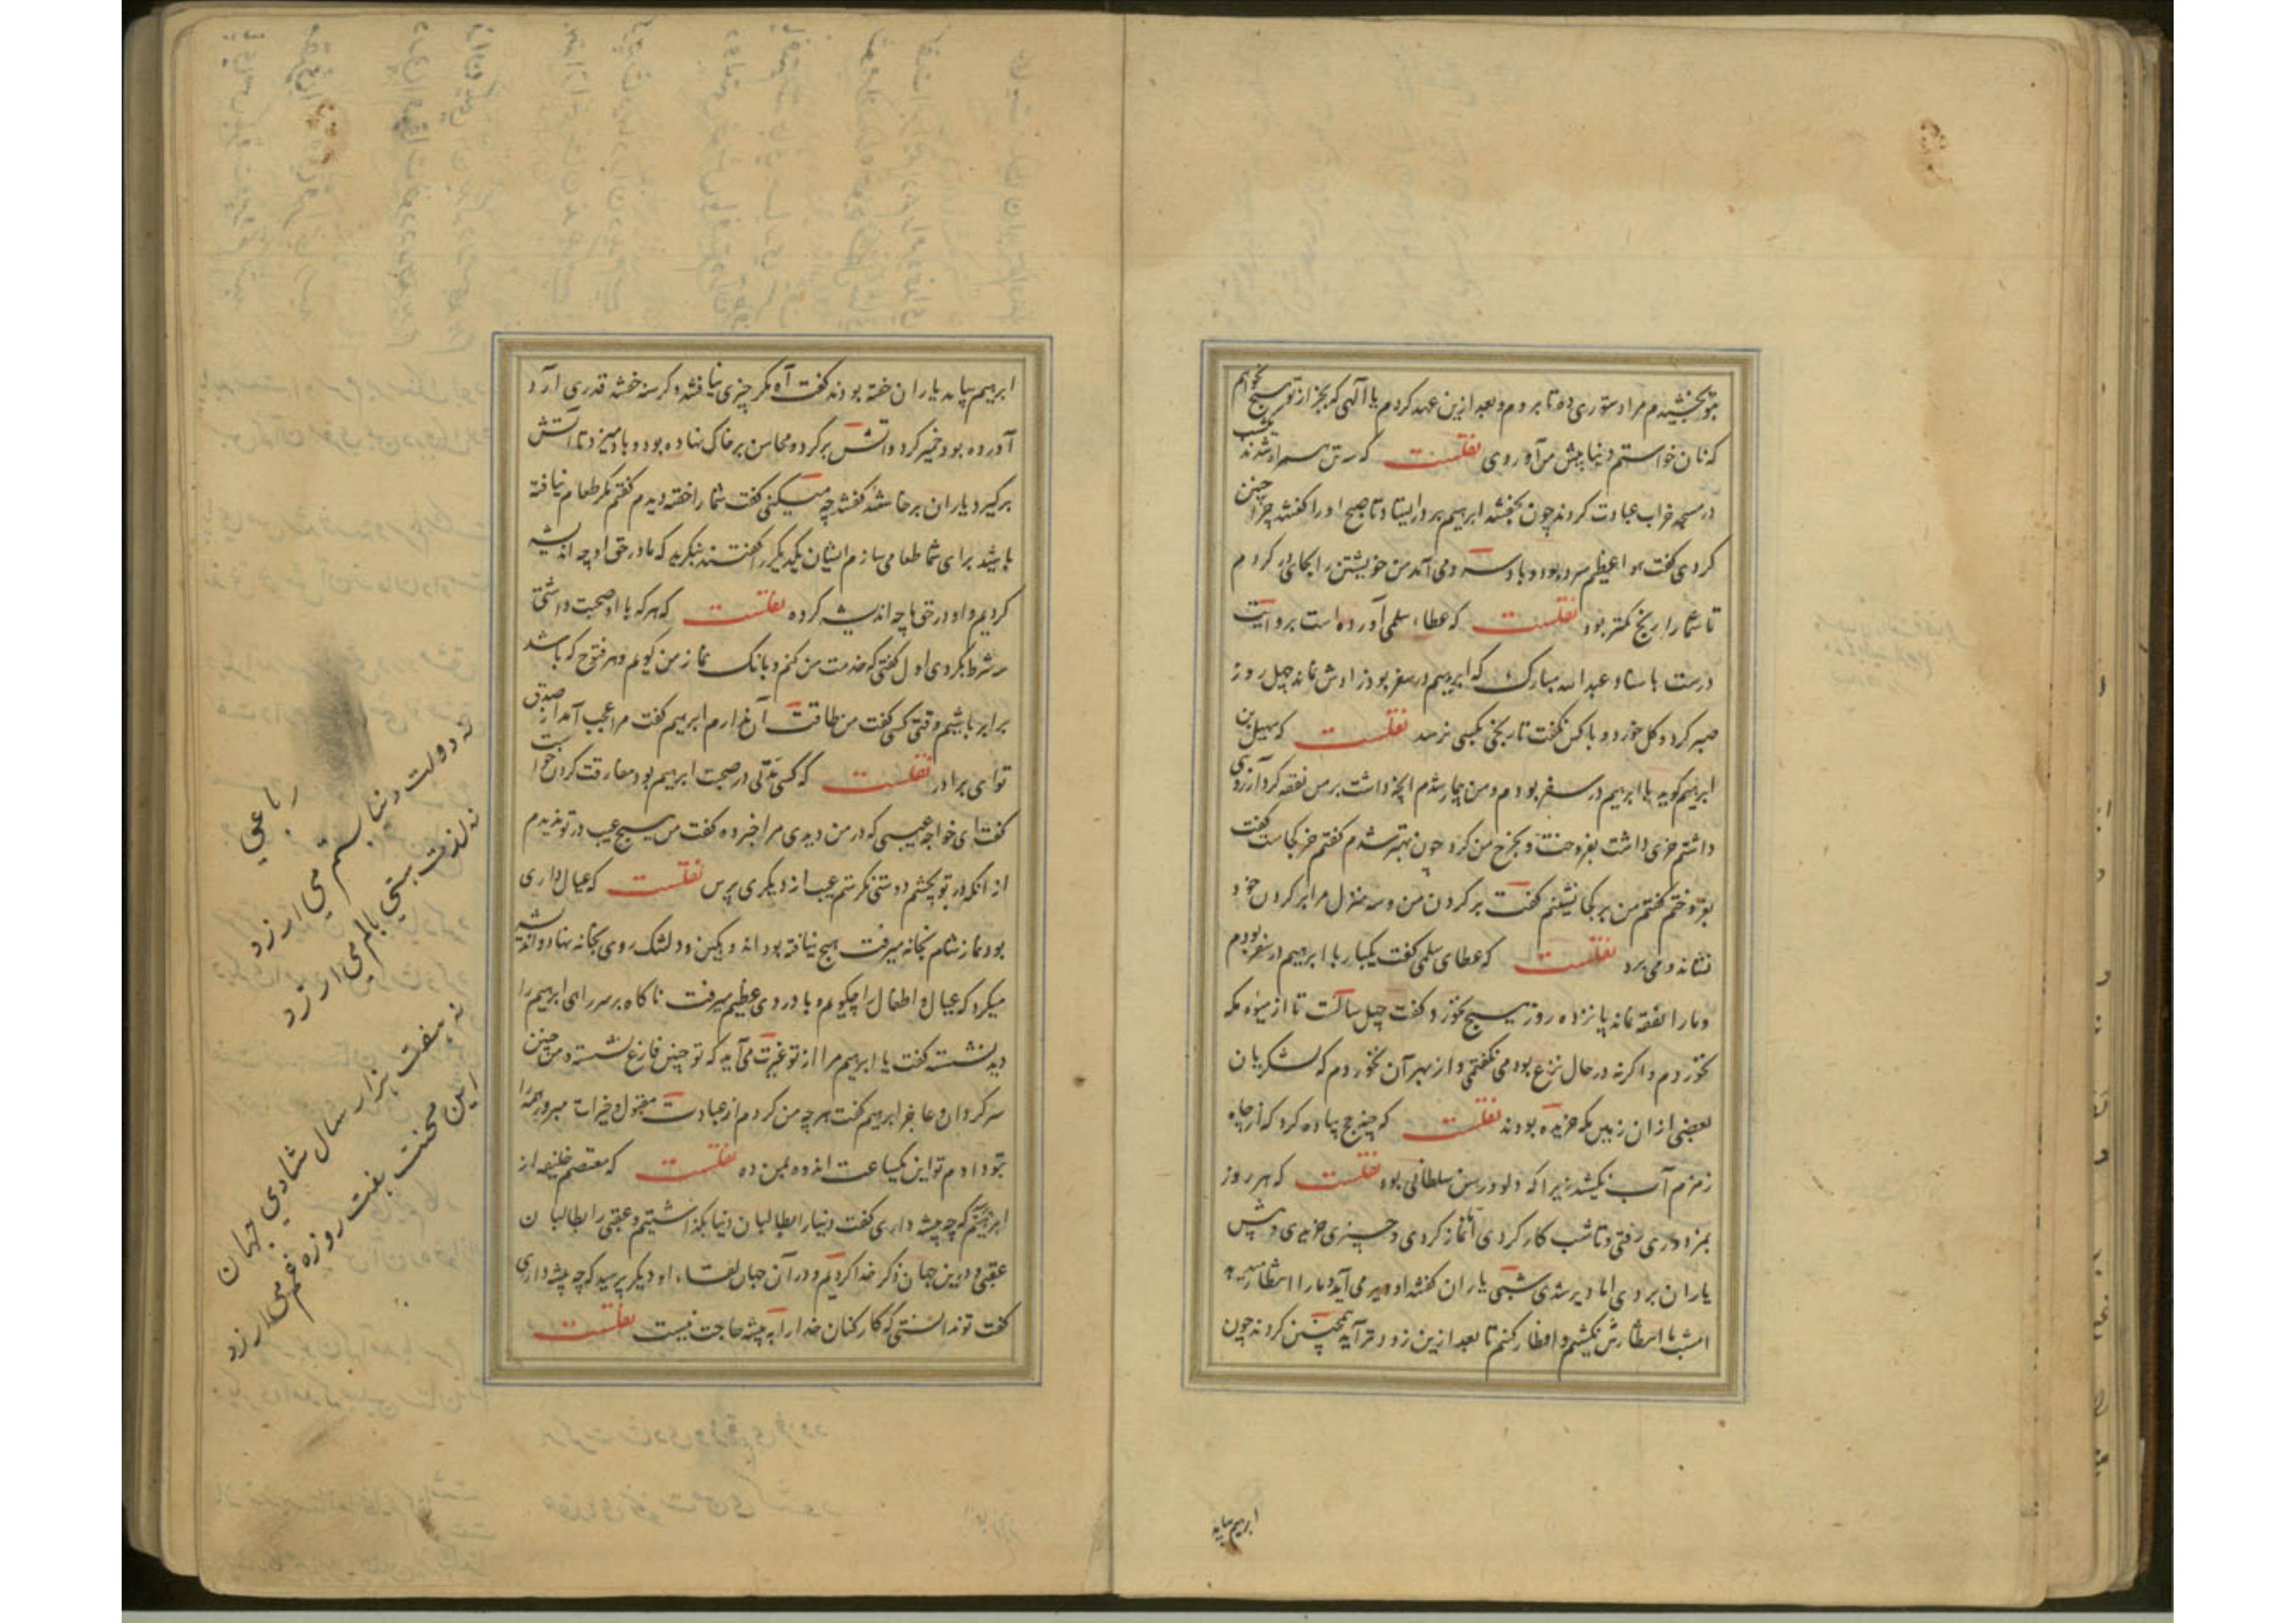 بتو بخشیدم مرا دستوری ده تا بروم و بعد ازین عهد کردم یا الهی که بجز از تو هیچ نخواهم
که نان خواستم دنیا پیش من آوردی نقلست که سه تن همراه شدند یکشب
در مسجد خراب عبادت کردند چون بخفتند ابرهیم بر در ایستاد تا صبح او را گفتند چرا چنین
کردی گفت هوا عظیم سرد بود و باد سرد می آمد من خویشتن را بجای در کردم
تا شما را رنج کمتر بود نقلست که عطاء سلمی آورده است بروایت
درست باسناد عبدالله مبارک که ابرهیم در سفر بود زادش نماند چهل روز
صبر کرد و گل خورد و با کس نگفت تا رنجی بکسی نرسد نقلست که سهیل بن
ابرهیم گوید با ابرهیم در سفر بودم و من بیمار شدم آنچه داشت بر من نفقه کرد آرزوی
داشتم خری داشت بفروخت و بخرج من کرد چون بهتر شدم گفتم خر کجاست گفت
بفروختم گفتم من بر کجا نشینم گفت بر گردن من و سه منزل مرا بر گردن خود
نشاند و می برد نقلست که عطای سلمی گفت یکبار با ابرهیم در سفر بودم
و ما را نفقه نماند پانزده روز هیچ نخورد و گفت چهل سالست تا از میوه مکه
نخوردم و اگر نه در حال نزع بودمی نگفتمی و از بهر آن نخوردم که لشکریان
بعضی از ان زمین مکه خریده بودند نقلست که چند حج پیاده کرد که از چاه
زمزم آب نکشید زیرا که دلو و رسن سلطانی بود نقلست که هر روز
بمزدوری رفتی و تا شب کار کردی تا نماز کردی و چیزی خریدی و پیش
یاران بردی اما دیر شدی شبی یاران گفتند او دیر می آید و ما را انتظار میدهد
امشب با انتظارش نکشیم و افطار کنیم تا بعد ازین زودتر آید همچنین کردند چون
ابرهیم بیامد
ابرهیم بیامد یاران خفته بودند گفت آه مگر چیزی نیافتند و گرسنه خفتند قدری آرد
آورده بود خمیر کرد و آتش بر کرد و محاسن بر خاک نهاده بود و باد میزد تا آتش
برگیرد یاران برخاستند گفتند چه میکنی گفت شما را خفته دیدم گفتم مگر طعام نیافته
باشید برای شما طعامی سازم ایشان یکدیگر را گفتند بنگرید که ما در حق او چه اندیشه
کردیم و او در حق ما چه اندیشه کرده نقلست که هر که با او صحبت داشتی
سه شرط بکردی اول گفتی که خدمت من کنم و بانگ نماز من گویم و هر فتوح که باشد
برابر باشیم وقتی کسی گفت من طاقت آن ندارم ابرهیم گفت مرا عجب آمد از صدق
تو ای برادر نقلست که کسی مدتی در صحبت ابرهیم بود مفارقت کردن خواست
گفت ای خواجه عیبی که در من دیدی مرا خبر ده گفت من هیچ عیب در تو ندیدم
از آنکه در تو بچشم دوستی نگرستم عیب از دیگری پرس نقلست که عیال داری
بود نماز شام بخانه میرفت هیچ نیافته بود اندوهگین و دلتنگ روی بخانه نهاد و اندیشه
میکرد که عیال و اطفال را چگویم و با دردی عظیم میرفت ناگاه بر سر راهی ابرهیم را
دید نشسته گفت یا ابرهیم مرا از تو غیرت می آید که تو چنین فارغ نشسته و من چنین
سرگردان و عاجز ابرهیم گفت هر چه من کردم از عبادت مقبول و خیرات مبرور همه را
بتو دادم تو این یکساعت اندوه بمن ده نقلست که معتصم خلیفه از
ابرهیم پرسید که چه پیشه داری گفت دنیا را بطالبان دنیا بگذاشتیم و عقبی را بطالبان
عقبی و درین جهان ذکر خدا کردیم و در آن جهان لقاء او دیگر پرسید که چه پیشه داری
گفت تو ندانستی که کارکنان خدا را به پیشه حاجت نیست نقلست
رباعی
نه دولت دنیا بستم می ارزد
نه لذت مستی بالم می ارزد
نه هفت هزار سال شادی جهان
این محنت هفت روزه غم می ارزد